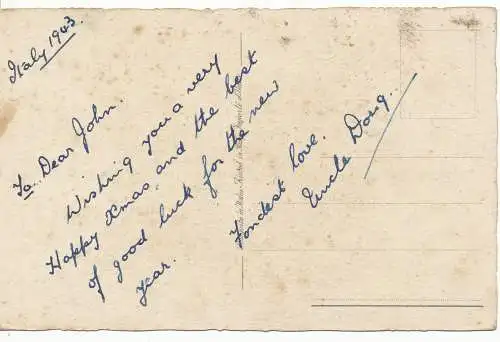 Italy 1943
To Dear John.
Wishing you a very
Happy Xmas, and the best
of good luck for the new
year.
Fondest love.
Uncle Doug.